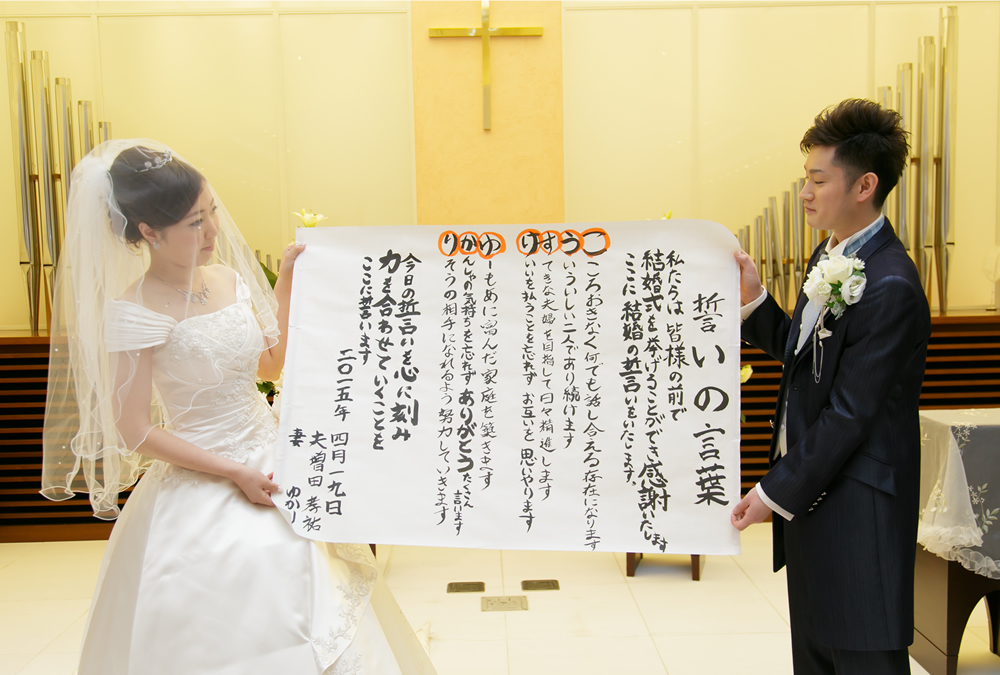 誓いの言葉
私たちは 皆様の前で
結婚式を挙げることができ感謝いたします
ここに 結婚の誓いをいたします。
こころおきなく何でも話し合える存在になります
ういういしい二人であり続けます
すてきな夫婦を目指して日々精進します
けいいを払うことを忘れず お互いを 思いやります
ゆーもあに富んだ家庭を築きます
かんしゃの気持ちを忘れず ありがとうたくさん言います
りそうの相手になれるよう 努力していきます
今日の誓いを心に刻み
力を合わせていくことを
ここに誓います
二〇一五年 四月一九日
夫 増田 孝祐
妻 ゆかり